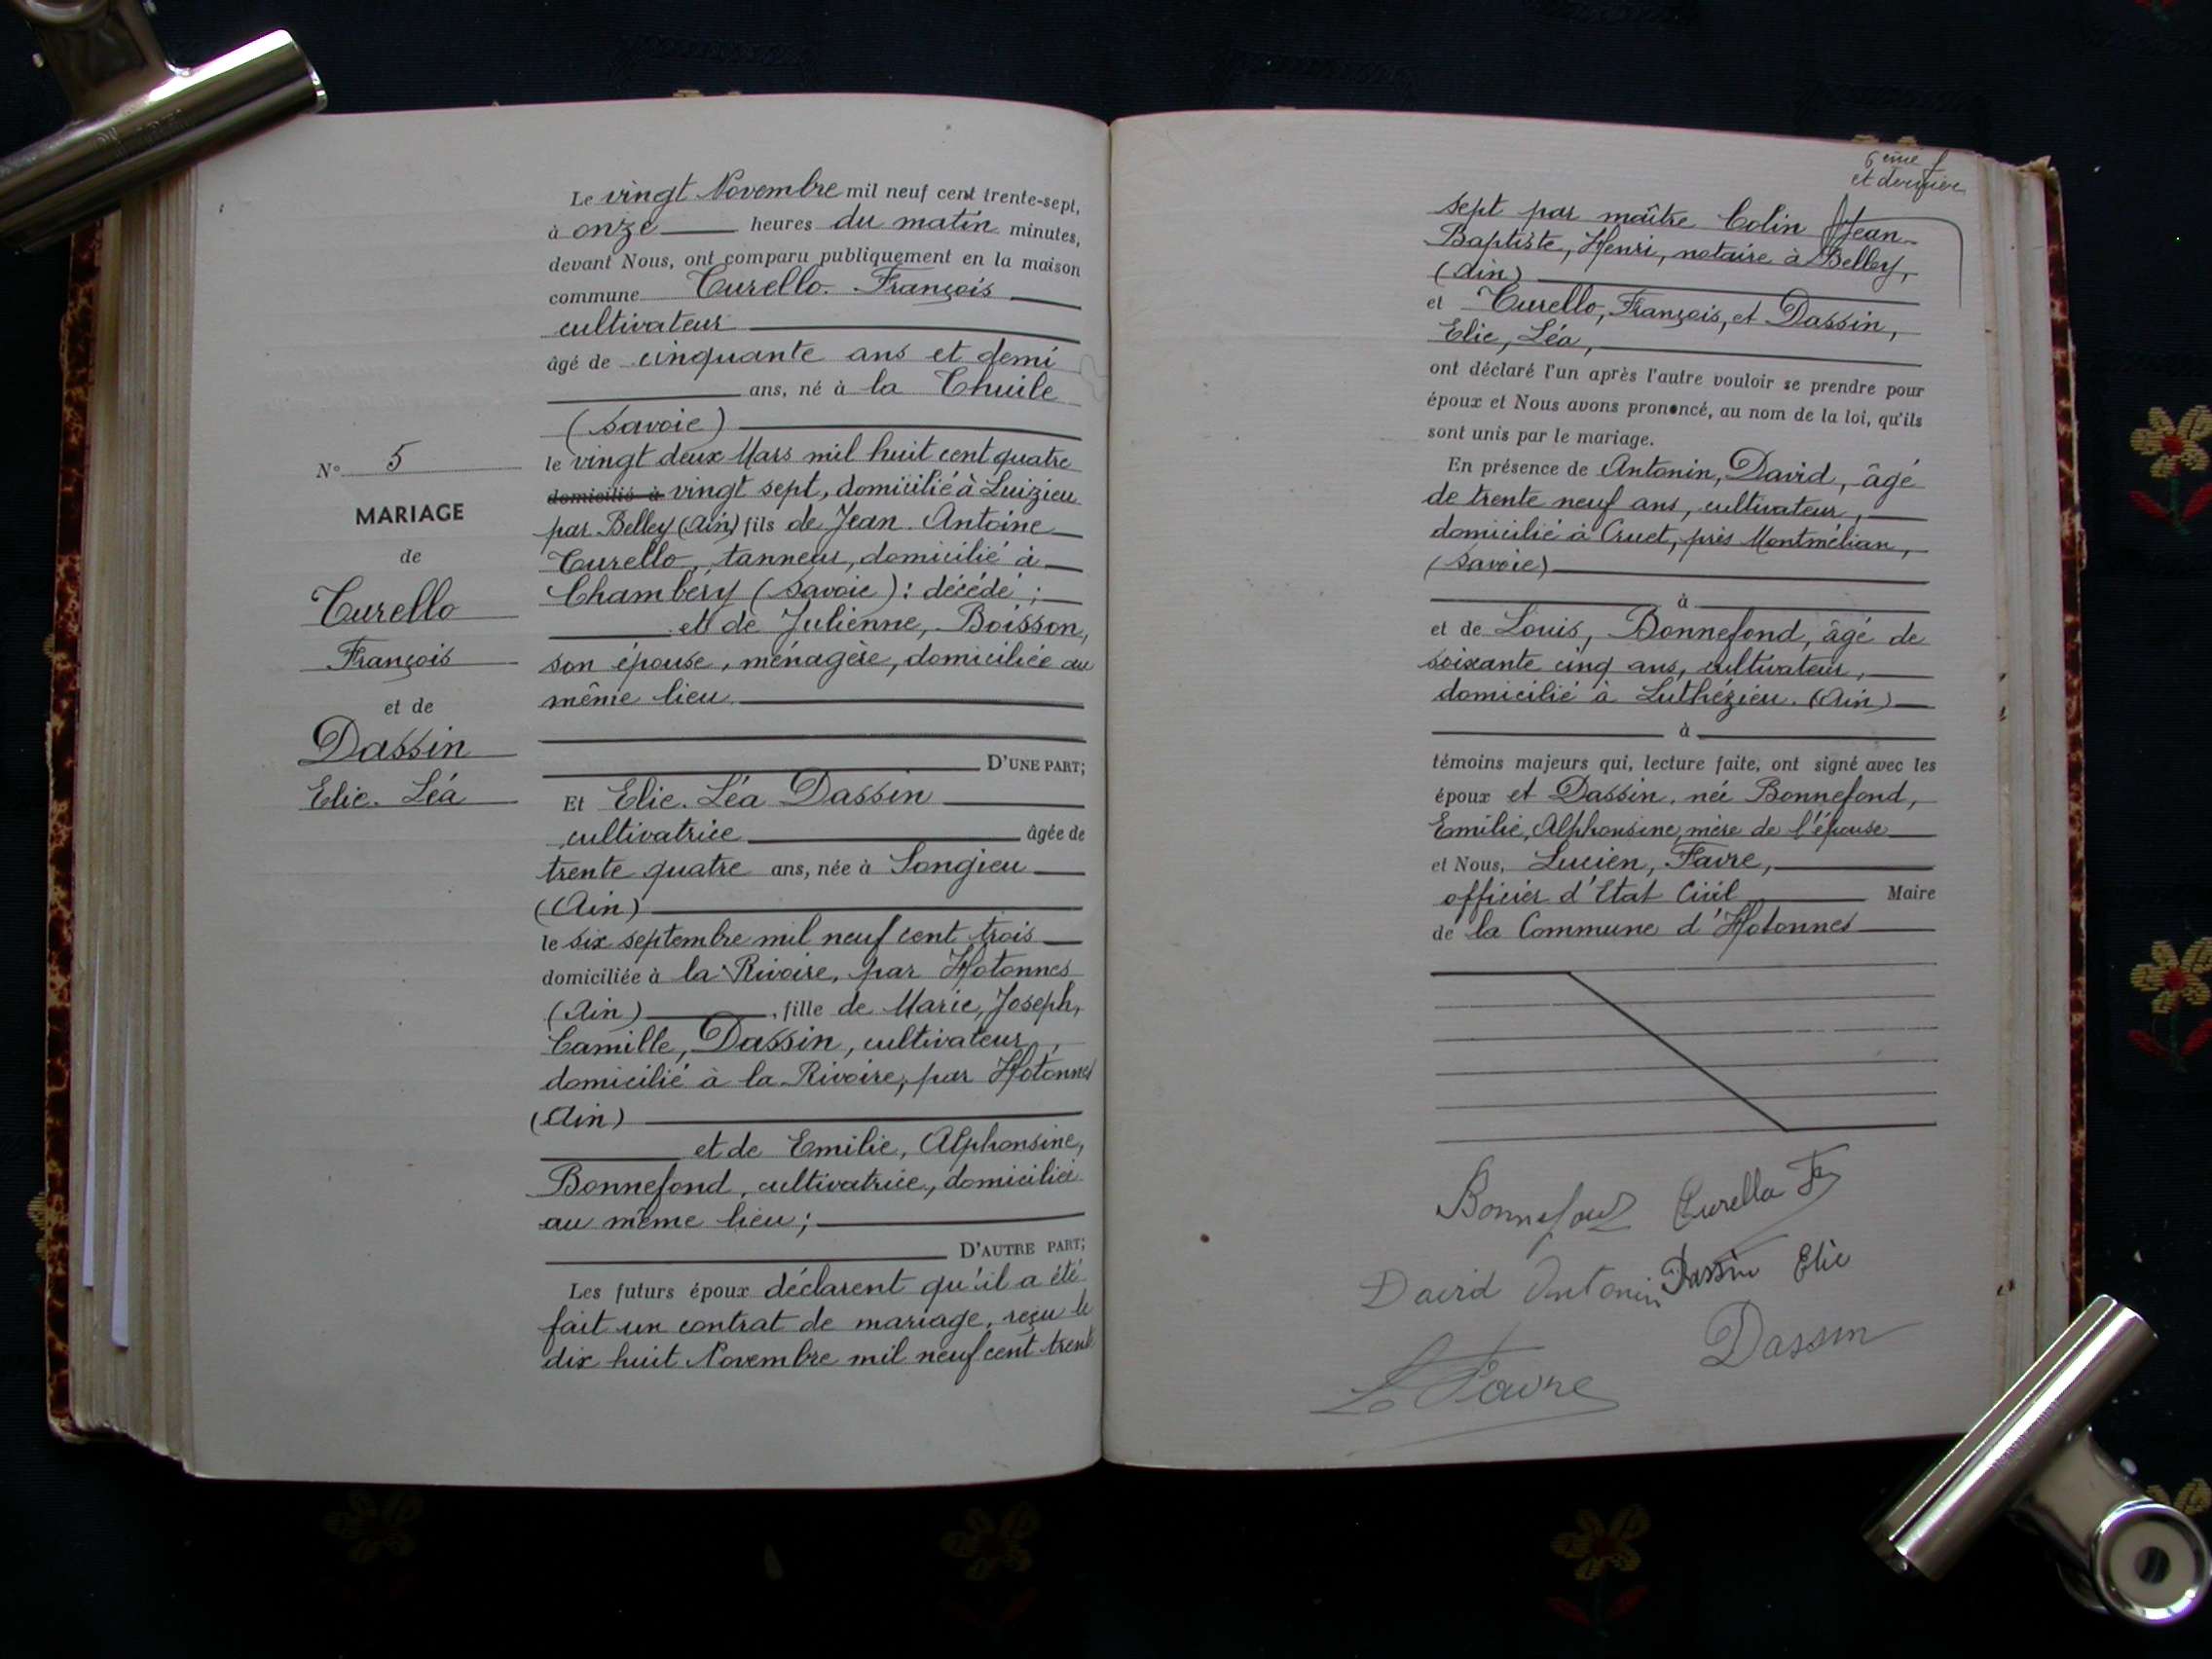 N° 5
MARIAGE
de
Curello
François
et de
Dassin
Elie. Léa
Le vingt Novembre mil neuf cent trente-sept,
à onze heures du matin minutes,
devant Nous, ont comparu publiquement en la maison
commune Curello. François
cultivateur
âgé de cinquante ans et demi
ans, né à la Thuile
(Savoie)
le vingt deux Mars mil huit cent quatre
domicilié à vingt sept, domicilié à Luizieu
par Belley (Ain) fils de Jean. Antoine
Curello, tanneur, domicilié à
Chambéry (Savoie) : décédé ;
et de Julienne, Boisson,
son épouse, ménagère, domiciliée au
même lieu.
D'UNE PART;
Et Elie. Léa Dassin
cultivatrice âgée de
trente quatre ans, née à Songieu
(Ain)
le six septembre mil neuf cent trois
domiciliée à la Rivoire, par Hotonnes
(Ain), fille de Marie, Joseph,
Camille, Dassin, cultivateur,
domicilié à la Rivoire, par Hotonnes
(Ain)
et de Emilie, Alphonsine,
Bonnefond, cultivatrice, domiciliée
au même lieu;
D'AUTRE PART;
Les futurs époux déclarent qu'il a été
fait un contrat de mariage, reçu le
dix huit Novembre mil neuf cent trent
6ème f
et dernier
sept par maître Colin Jean-
Baptiste, Henri, notaire à Belley,
(Ain)
et Curello, François, et Dassin,
Elie, Léa,
ont déclaré l'un après l'autre vouloir se prendre pour
époux et Nous avons prononcé, au nom de la loi, qu'ils
sont unis par le mariage.
En présence de Antonin, David, âgé
de trente neuf ans, cultivateur,
domicilié à Cruet, près Montmélian,
(Savoie)
à
et de Louis, Bonnefond, âgé de
soixante cinq ans, cultivateur,
domicilié à Luthézieu. (Ain)
à
témoins majeurs qui, lecture faite, ont signé avec les
époux et Dassin, née Bonnefond,
Emilie, Alphonsine, mère de l'épouse
et Nous, Lucien, Favre,
officier d'Etat Civil Maire
de la Commune d'Hotonnes
Bonnefond Curello Fs
David Antonin Dassin Elie
Dassin
L Favre